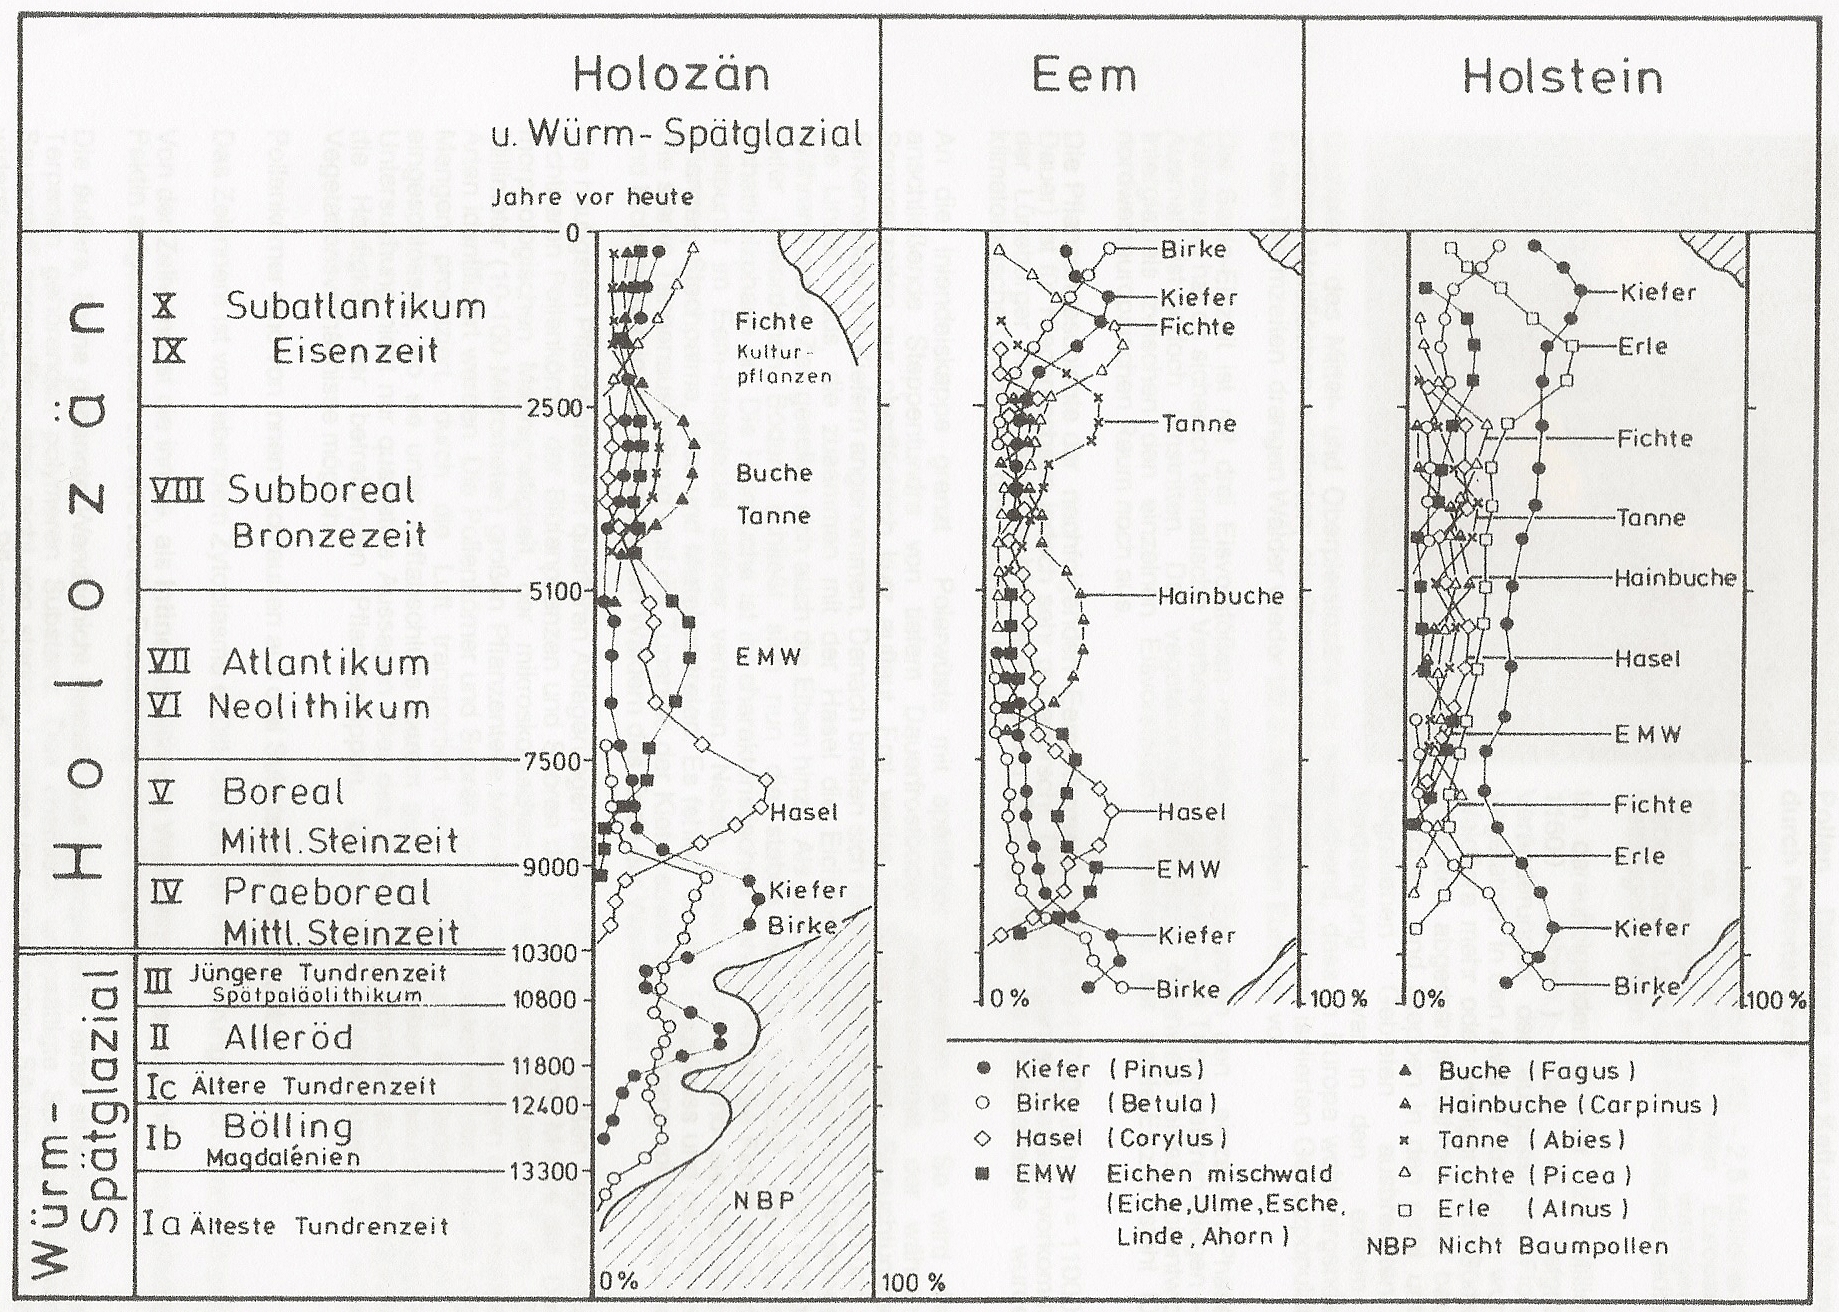 Holozän
u. Würm-Spätglazial
Jahre vor heute
Eem
Holstein
Holozän
Würm-
Spätglazial
X Subatlantikum
IX Eisenzeit
VIII Subboreal
Bronzezeit
VII Atlantikum
VI Neolithikum
V Boreal
Mittl. Steinzeit
IV Praeboreal
Mittl. Steinzeit
III Jüngere Tundrenzeit
Spätpaläolithikum
II Alleröd
Ic Ältere Tundrenzeit
Ib Bölling
Magdalénien
Ia Älteste Tundrenzeit
0
2500
5100
7500
9000
10300
10800
11800
12400
13300
Fichte
Kultur-
pflanzen
Buche
Tanne
EMW
Hasel
Kiefer
Birke
NBP
0%
100 %
Birke
Kiefer
Fichte
Tanne
Hainbuche
Hasel
EMW
Kiefer
Birke
0%
100 %
Kiefer
Erle
Fichte
Tanne
Hainbuche
Hasel
EMW
Fichte
Erle
Kiefer
Birke
0%
100 %
Kiefer (Pinus)
Birke (Betula)
Hasel (Corylus)
EMW Eichen mischwald
(Eiche, Ulme, Esche,
Linde, Ahorn)
Buche (Fagus)
Hainbuche (Carpinus)
Tanne (Abies)
Fichte (Picea)
Erle (Alnus)
NBP Nicht Baumpollen